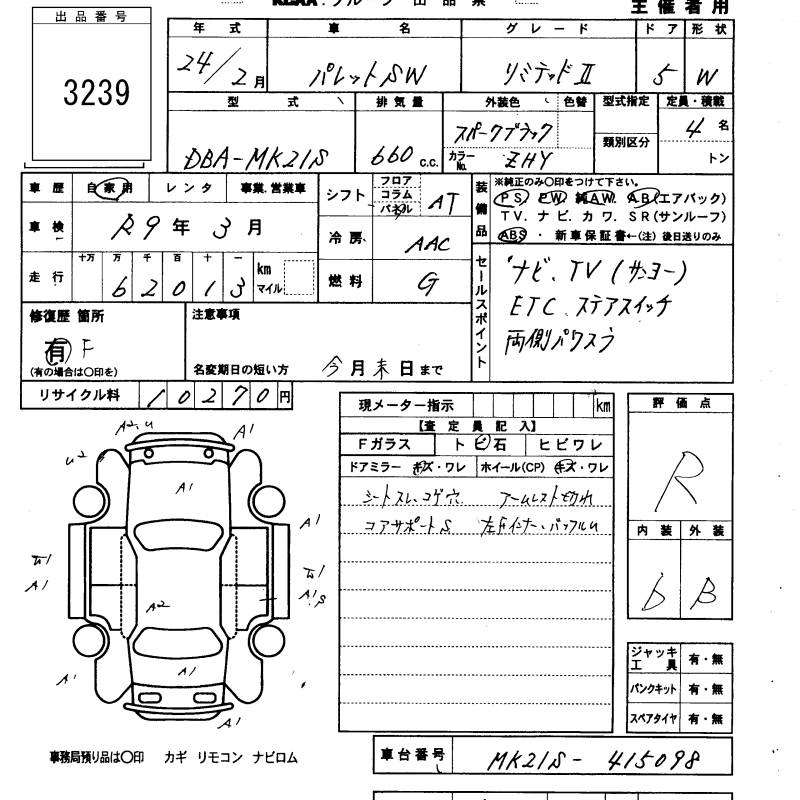 グループ 出品票
主催者用
出品番号
3239
年式 車名 グレード ドア 形状
24/2月 パレットSW リミテッドⅡ 5 W
型式 排気量 外装色 色替 型式指定 定員・積載
DBA-MK21S 660 c.c. スパークブラック 類別区分 4名
カラーNo. ZHY トン
車歴 自家用 レンタ 事業.営業車
シフト フロア コラム パネル AT
装備品 ※純正のみ○印をつけて下さい。
PS. PW. 純AW. AB(エアバック)
TV. ナビ. カワ. SR(サンルーフ)
ABS ・ 新車保証書←(注)後日送りのみ
車検 R9年 3月
冷房 AAC
走行 十万 万 千 百 十 一
62013 km マイル
燃料 G
セールスポイント
ナビ、TV(サンヨー)
ETC ステアスイッチ
両側パワスラ
修復歴 箇所
有 F
(有の場合は○印を)
注意事項
名変期日の短い方 今月末日まで
リサイクル料 10270円
現メーター指示 km
【査定員記入】
Fガラス トビ石 ヒビワレ
ドアミラー キズ・ワレ ホイール(CP) キズ・ワレ
シートスレ、コゲ穴 アームレスト切れ
コアサポートS 左Fインナー、バッフルU
評価点
R
内装 外装
b B
A2、U
A1
U2
A1
A1
A1
W1
A1
A2
A1
A1
A1
ジャッキ工具 有・無
パンクキット 有・無
スペアタイヤ 有・無
事務局預り品は○印 カギ リモコン ナビロム
車台番号 MK21S-415098